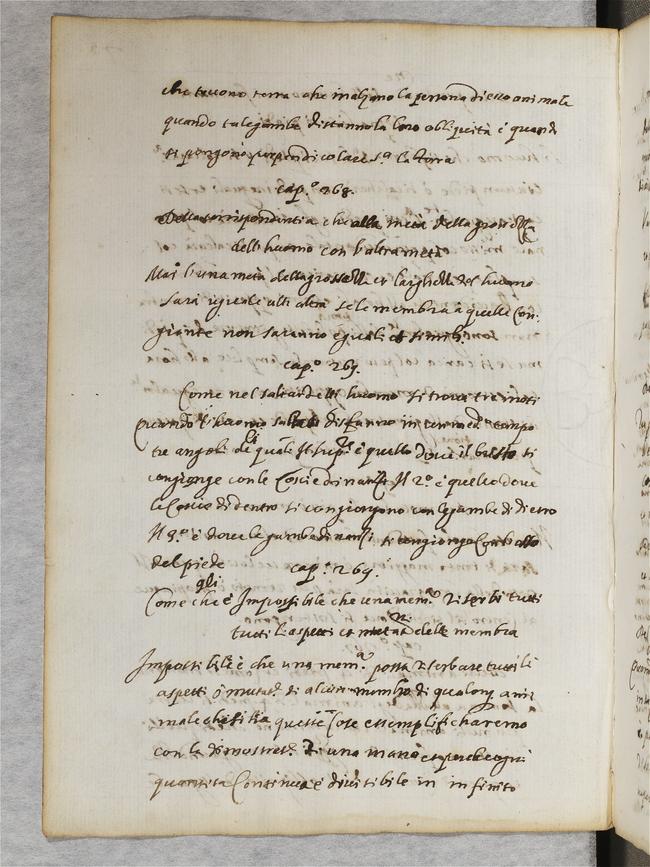 che toccono terra che inalzano la persona di esso animale
quando tale gambe disfanno la loro obliquità é quando
si pongono perpendicolare s.ª la terra
cap.º 268.
Della corrispondentia che alla metà della grossezza
dell huomo con l'altra metà
Mai l'una metà della grossezza et larghezza del huomo
sarà uguale all altra se le membra a quelle Con,
giunte non saranno equali et simili.
cap.º 269.
Come nel saltar dell huomo si trova tre moti
Quando l'huomo salta disfanno in un med.º tempo
tre angoli de quali Il sup.re é quello dove il busto si
congionge con le Coscie dinanzi Il 2.º é quello dove
le Coscie didentro si congiongono con le gambe di dietro
Il 3.º é dove le gambe dinanzi si congionge Con l'osso
del piede cap.º 269.
gli
Come che é Impossibile che una mem.ª riserbi tutti
tutti li aspetti et mutat.ni delle membra
Impossibile é che una mem.ª possa riserbare tutti li
aspetti ò mutat. di alcun membro di qualonq ani
male che si sia queste Cose essemplificharemo
con la dimostrat. di una mano et perche ogni
quantita Continua é divisibile in infinito